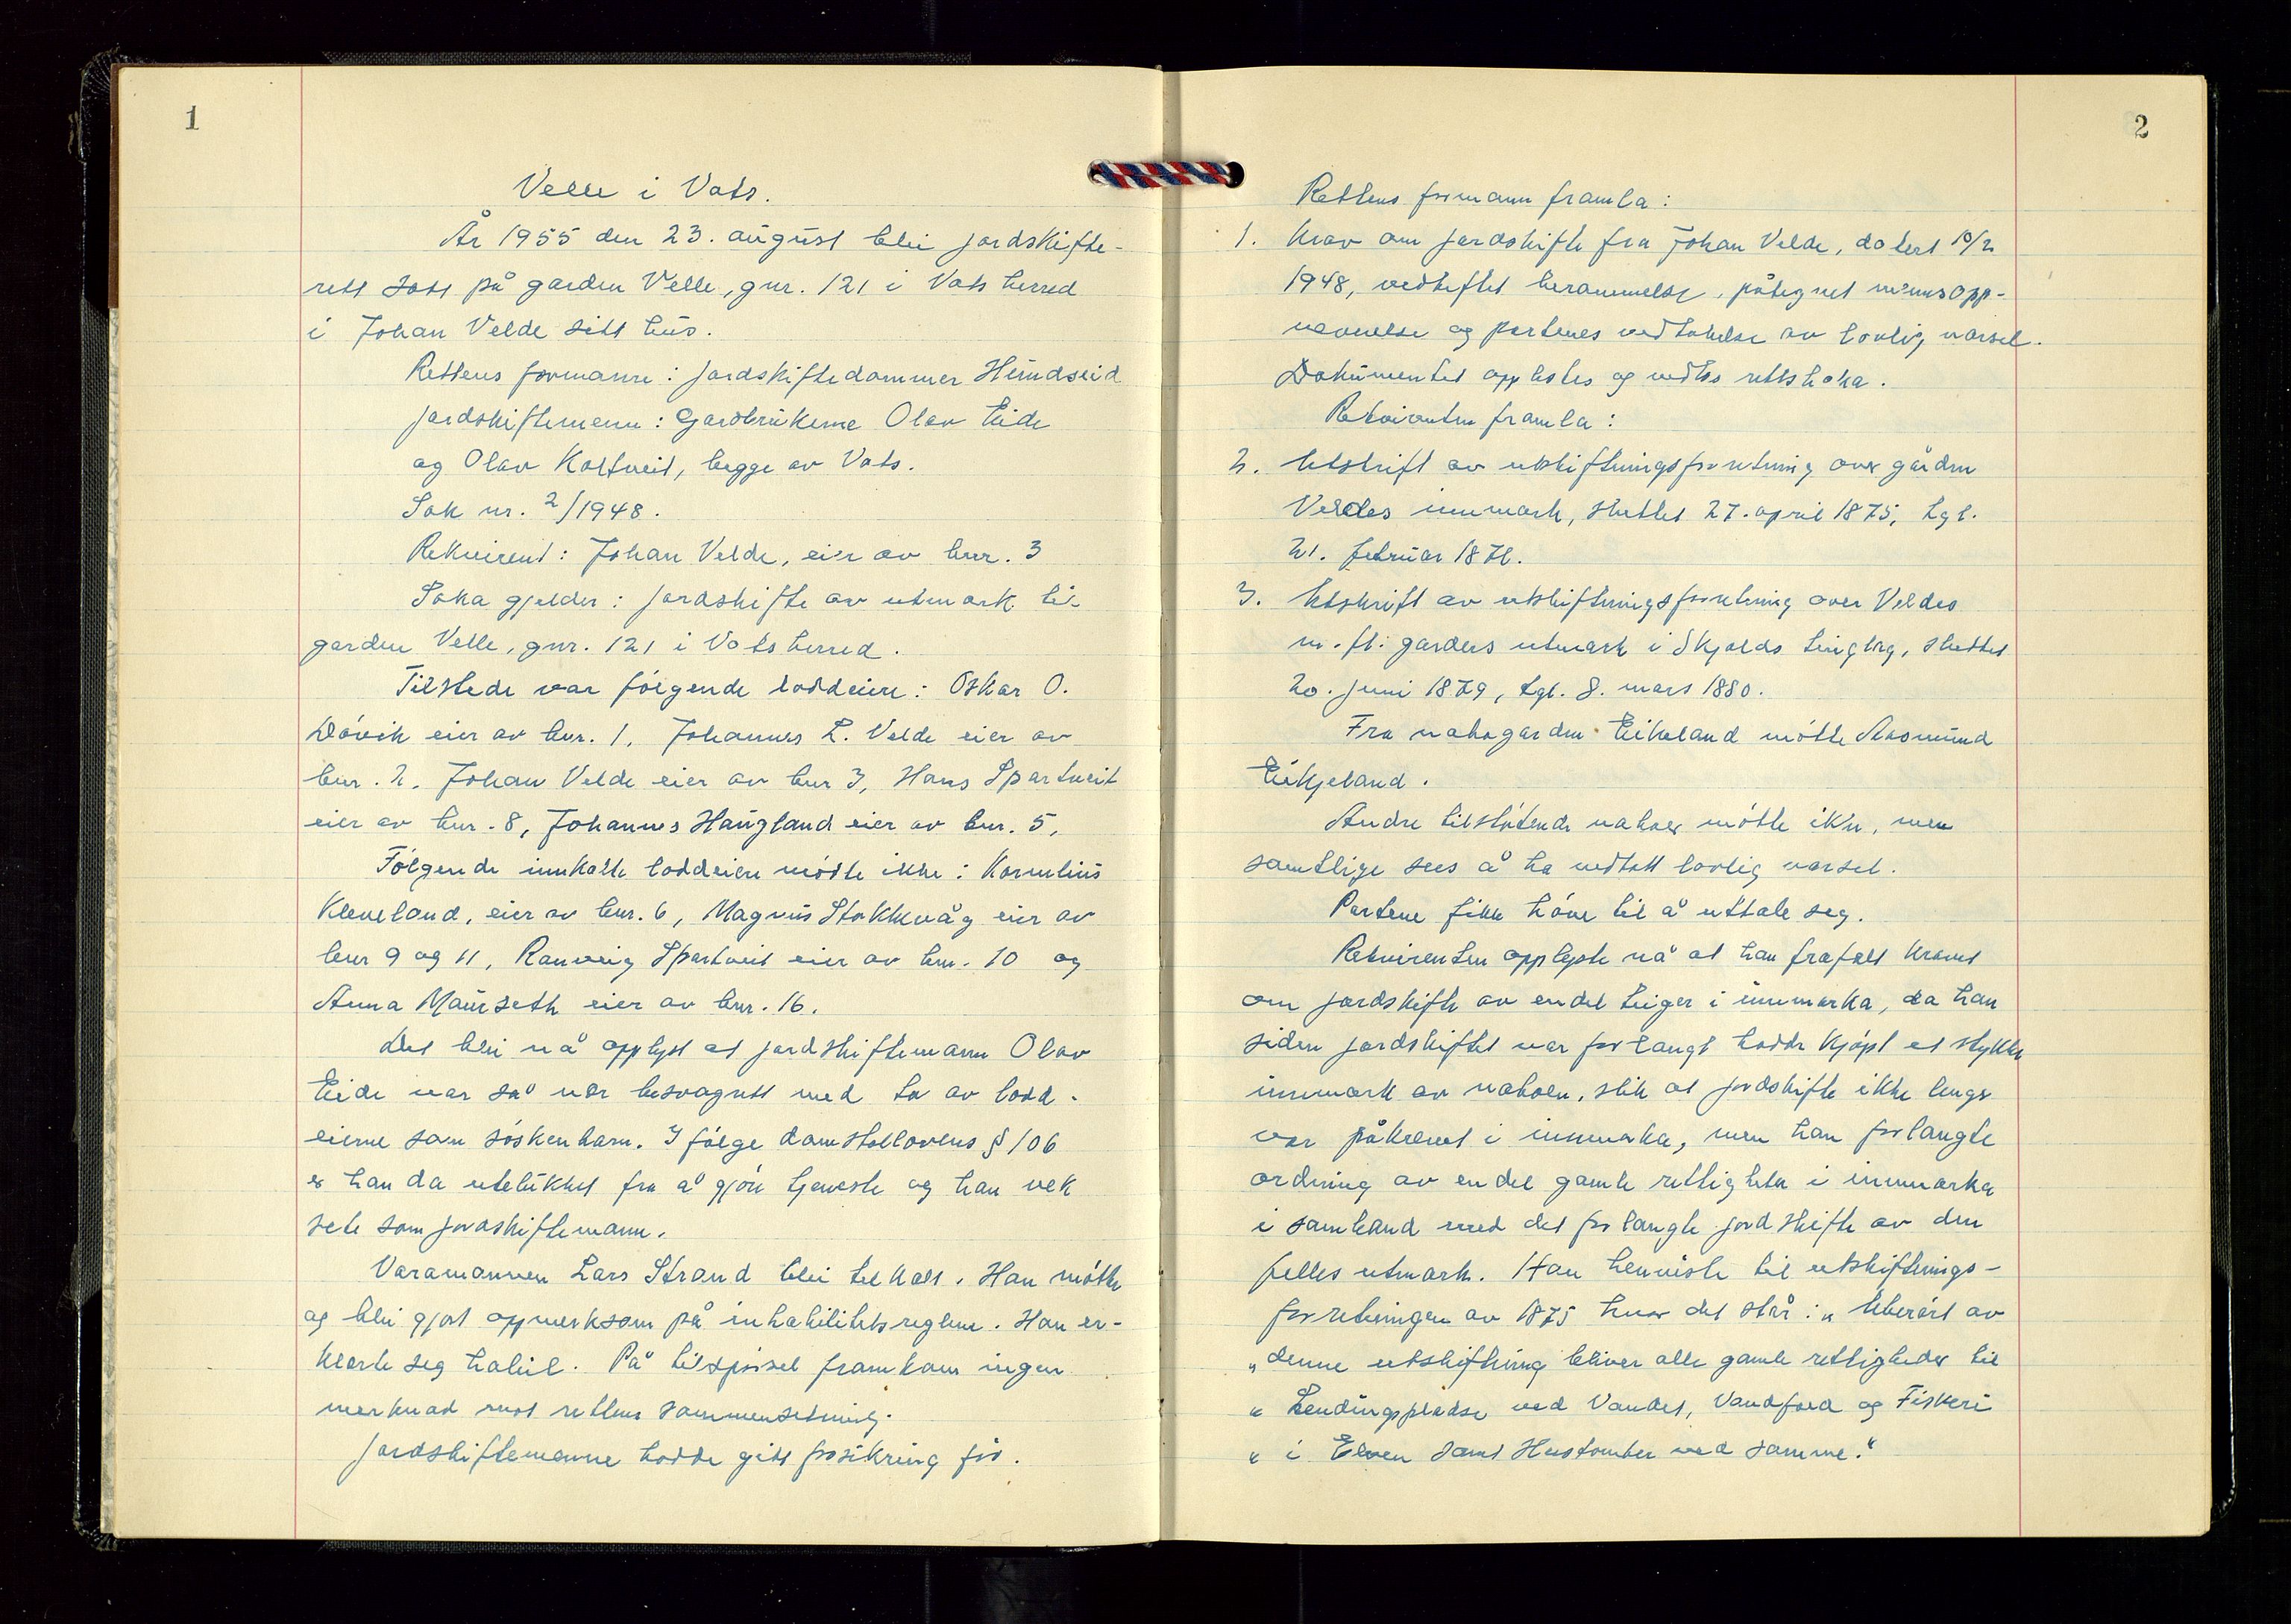 1
Velle i Vats.
År 1955 den 23. august blei jordskifte-
rett satt på garden Velle, gnr. 121 i Vats herred
i Johan Velde sitt hus.
Rettens formann: jordskiftedommer Heimdseid
jordskiftemenn: Gardbrukerne Olav Eide
og Olav Kaltveit, begge av Vats.
Sak nr. 2/1948.
Rekvirent: Johan Velde, eier av bnr. 3
Saka gjelder: jordskifte av utmark til
garden Velle, gnr. 121 i Vats herred.
Tilstede var følgende loddeiere: Oskar O.
Døvik eier av bnr. 1, Johannes L. Velde eier av
bnr. 2, Johan Velde eier av bnr 3, Hans Spartveit
eier av bnr. 8, Johannes Haugland eier av bnr. 5,
Følgende innkalte loddeiere møtte ikke: Kornelius
Kleveland, eier av bnr. 6, Magnus Stokkevåg eier av
bnr 9 og 11, Ranveig Spartveit eier av bnr. 10 og
Anna Maurseth eier av bnr. 16.
Det blei nå opplyst at jordskiftemann Olav
Eide var så nær besvogret med to av lodd-
eierne som søskenbarn. Ifølge domstollovens § 106
er han da utelukket fra å gjøre tjeneste og han vek
sete som jordskiftemann.
Varamannen Lars Strand blei tilkalt. Han møtte
og blei gjort oppmerksom på inhabilitetsreglene. Han er-
klærte seg habil. På tilspørsel framkom ingen
merknad mot rettens sammensetning.
Jordskiftemenne hadde gitt forsikring før.
2
Rettens formann framla:
1. Krav om jordskifte fra Johan Velde, datert 10/2
1948, vedheftet berammelse, påtegnet mannsopp-
nevnelse og partenes vedtakelse av lovlig varsel.
Dokumentet opplestes og vedtas rettsboka.
Rekvirenten framla:
2. Utskrift av utskiftningsforretning over gården
Veldes innmark, sluttet 27. april 1875, tgl.
21. februar 1876.
3. Utskrift av utskiftningsforretning over Veldes
m. fl. garders utmark i Skjolds tinglag, sluttet
20. juni 1879, tgl. 8. mars 1880.
Fra nabogarden Eikeland møtte Aasmund
Eikjeland.
Andre tilstøtende naboer møtte ikke, men
samtlige sees å ha vedtatt lovlig varsel.
Partene fikk høve til å uttale seg.
Rekvirenten opplyste nå at han frafalt kravet
om jordskifte av endel teiger i innmarka, da han
siden jordskiftet var forlangt hadde kjøpt et stykke
innmark av naboen, slik at jordskifte ikke lenger
var påkrevet i innmarka, men han forlangte
ordning av endel gamle rettigheter i innmarka
i samband med det forlangte jordskifte av den
felles utmark. Han henviste til utskiftnings-
forretningen av 1875 hvor det står: „ Uberørt av
„ denne utskiftning bliver alle gamle rettigheder til
„ Lendingspladse ved Vandet, Vandførd og Fiskeri
„ i Elven samt Hustomter ved samme."